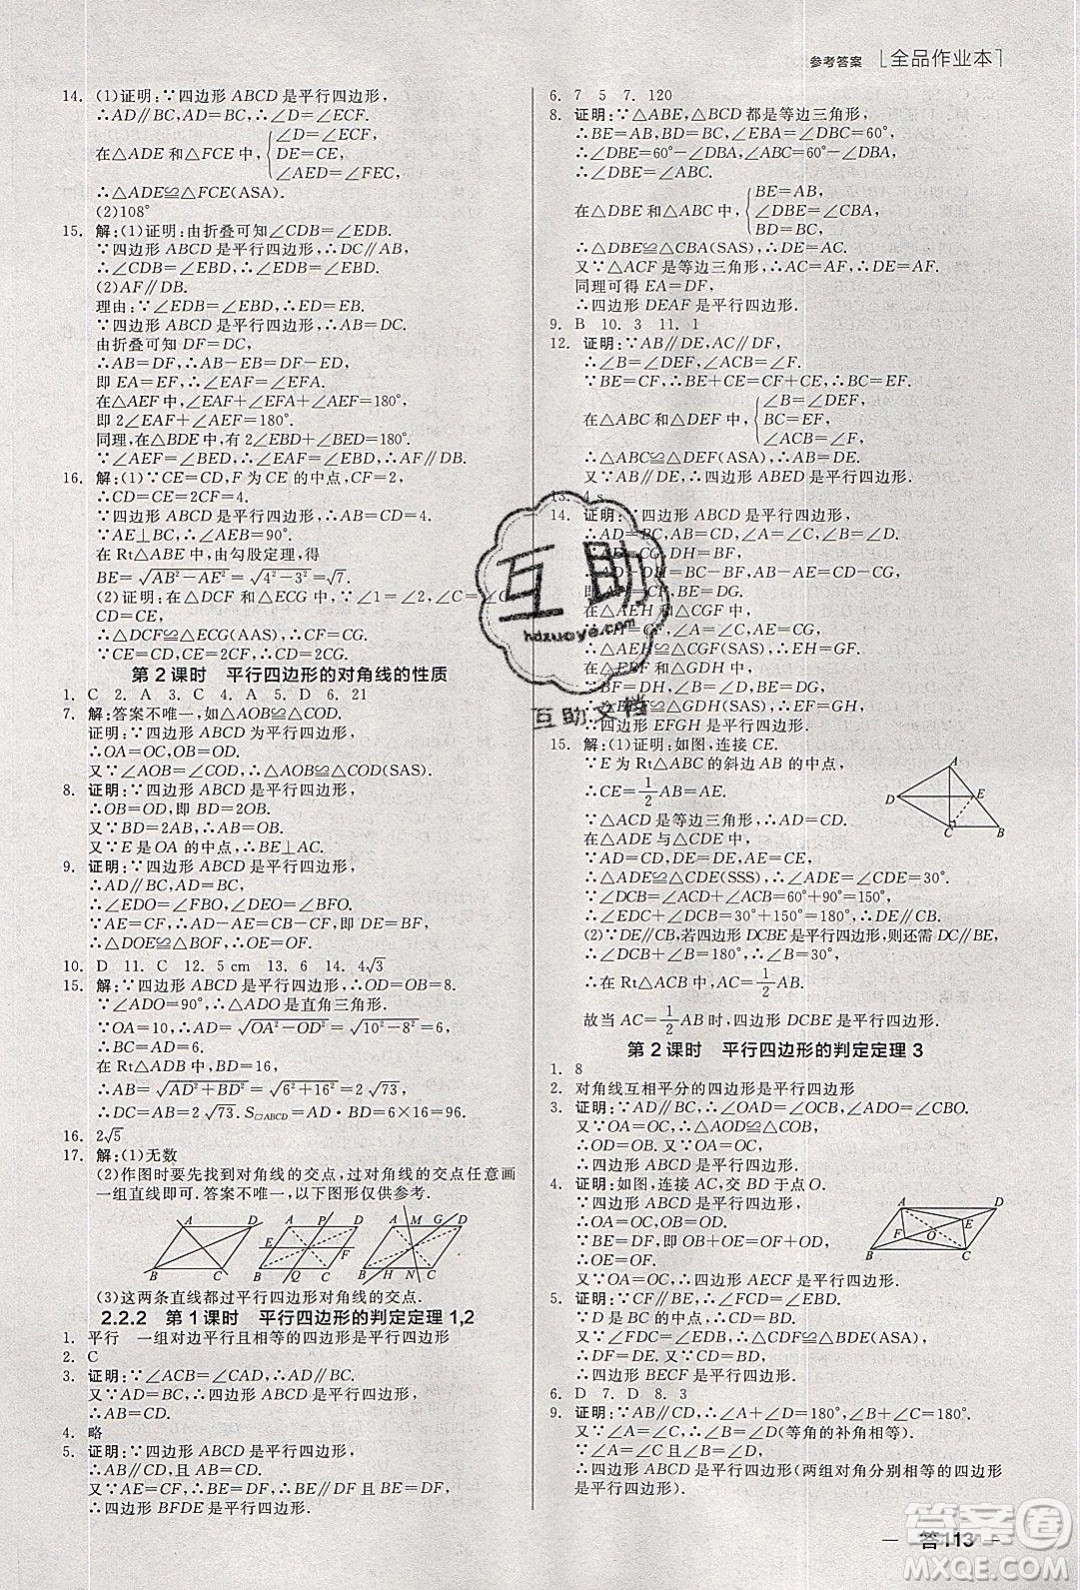 参考答案 [全品作业本]
14. (1)证明:∵四边形 ABCD 是平行四边形,
∴AD∥BC,AD=BC,∴∠D=∠ECF.
∠D=∠ECF,
在△ADE 和△FCE 中, DE=CE,
∠AED=∠FEC,
∴△ADE≌△FCE(ASA).
(2)108°
15. 解:(1)证明:由折叠可知∠CDB=∠EDB.
∵四边形 ABCD 是平行四边形,∴DC∥AB,
∴∠CDB=∠EBD,∴∠EDB=∠EBD.
(2)AF∥DB.
理由:∵∠EDB=∠EBD,∴ED=EB.
∵四边形 ABCD 是平行四边形,∴AB=DC.
由折叠可知 DF=DC,
∴AB=DF,∴AB-EB=DF-ED,
即 EA=EF,∴∠EAF=∠EFA.
在△AEF 中,∠EAF+∠EFA+∠AEF=180°,
即 2∠EAF+∠AEF=180°.
同理,在△BDE 中,有 2∠EBD+∠BED=180°.
∵∠AEF=∠BED,∴∠EAF=∠EBD,∴AF∥DB.
16. 解:(1)∵CE=CD,F 为 CE 的中点,CF=2,
∴CD=CE=2CF=4.
∵四边形 ABCD 是平行四边形,∴AB=CD=4.
∵AE⊥BC,∴∠AEB=90°.
在 Rt△ABE 中,由勾股定理,得
BE=√AB²-AE²=√4²-3²=√7.
(2)证明:在△DCF 和△ECG 中,∵∠1=∠2,∠C=∠C,
CD=CE,
∴△DCF≌△ECG(AAS),∴CF=CG.
∵CE=CD,∴CE=2CF,∴CD=2CG.
第 2 课时 平行四边形的对角线的性质
1. C 2. A 3. C 4. A 5. D 6. 21
7. 解:答案不唯一,如△AOB≌△COD.
证明:∵四边形 ABCD 为平行四边形,
∴OA=OC,OB=OD.
又∵∠AOB=∠COD,∴△AOB≌△COD(SAS).
8. 证明:∵四边形 ABCD 是平行四边形,
∴OB=OD,即 BD=2OB.
又∵BD=2AB,∴AB=OB.
又∵E 是 OA 的中点,∴BE⊥AC.
9. 证明:∵四边形 ABCD 是平行四边形,
∴AD∥BC,AD=BC,
∴∠EDO=∠FBO,∠DEO=∠BFO.
∵AE=CF,∴AD-AE=CB-CF,即 DE=BF,
∴△DOE≌△BOF,∴OE=OF.
10. D 11. C 12. 5 cm 13. 6 14. 4√3
15. 解:∵四边形 ABCD 是平行四边形,∴OD=OB=8.
∵∠ADO=90°,∴△ADO 是直角三角形.
∵OA=10,∴AD=√OA²-OD²=√10²-8²=6,
∴BC=AD=6.
在 Rt△ADB 中,∵AD=6,DB=16,
∴AB=√AD²+BD²=√6²+16²=2√73,
∴DC=AB=2√73.S□ABCD=DB·BC=6×16=96.
16. 2√5
17. 解:(1)无数
(2)作图时要先找到对角线的交点,过对角线的交点任意画
一组直线即可.答案不唯一,以下图形仅供参考.
A D B C
A P D E F B Q C
A M G D B H N C
(3)这两条直线都过平行四边形对角线的交点.
2.2.2 第 1 课时 平行四边形的判定定理 1,2
1. 平行 一组对边平行且相等的四边形是平行四边形
2. C
3. 证明:∵∠ACB=∠CAD,∴AD∥BC.
又∵AD=BC,∴四边形 ABCD 是平行四边形,
∴AB=CD.
4. 略
5. 证明:∵四边形 ABCD 是平行四边形,
∴AB∥CD,且 AB=CD.
又∵AE=CF,∴BE=DF,∴BE∥DF 且 BE=DF,
∴四边形 BFDE 是平行四边形.
6. 7 5 7. 120
8. 证明:∵△ABE,△BCD 都是等边三角形,
∴BE=AB,BD=BC,∠EBA=∠DBC=60°,
∴∠DBE=60°-∠DBA,∠CBA=60°-∠DBA,
∴∠DBE=∠CBA.
BE=AB,
在△DBE 和△CBA 中, ∠DBE=∠CBA,
BD=BC,
∴△DBE≌△CBA(SAS),∴DE=AC.
又∵△ACF 是等边三角形,∴AC=AF,∴DE=AF.
同理可得 EA=DF,
∴四边形 DEAF 是平行四边形.
9. B 10. 3 11. 1
12. 证明:∵AB∥DE,AC∥DF,
∴∠B=∠DEF,∠ACB=∠F.
∵BE=CF,∴BE+CE=CF+CE,∴BC=EF.
∠B=∠DEF,
在△ABC 和△DEF 中, BC=EF,
∠ACB=∠F,
∴△ABC≌△DEF(ASA),∴AB=DE.
又∵AB∥DE,∴四边形 ABED 是平行四边形.
13. 4 s
14. 证明:∵四边形 ABCD 是平行四边形,
∴AD=BC,AB=CD,∠A=∠C.
∵BF=DH,∴AH=CF.
在△AEH 和△CGF 中,
∴△AEH≌△CGF(SAS),∴EH=GF.
∵BF=DH,∠B=∠D,
∴△BEF≌△DGH(SAS),∴EF=GH,
∴四边形 EFGH 是平行四边形.
15. 解:(1)证明:如图,连接 CE.
∵E 为 Rt△ABC 的斜边 AB 的中点,
∴CE=1/2AB=AE.
∵△ACD 是等边三角形,∴AD=CD.
在△ADE 与△CDE 中,
∵AD=CD,DE=DE,AE=CE,
∴△ADE≌△CDE(SSS),∴∠ADE=∠CDE=30°.
∵∠DCB=∠ACB+∠ACD=90°+60°=150°,
∴∠EDC+∠DCB=30°+150°=180°,∴DE∥CB.
(2)∵DE∥CB,若四边形 DCBE 是平行四边形,则还需 DC∥BE,
∴∠DCB+∠B=180°,∴∠B=30°.
在 Rt△ACB 中,AC=1/2AB.
故当 AC=1/2AB 时,四边形 DCBE 是平行四边形.
A D E C B
第 2 课时 平行四边形的判定定理 3
1. 8
2. 对角线互相平分的四边形是平行四边形
3. 证明:∵AD∥BC,∴∠OAD=∠OCB,∠ADO=∠CBO.
又∵OA=OC,∴△AOD≌△COB,
∴OD=OB.又∵OA=OC,
∴四边形 ABCD 是平行四边形.
4. 证明:如图,连接 AC,交 BD 于点 O.
∵四边形 ABCD 是平行四边形,
∴OA=OC,OB=OD.
∵BE=DF,∴OB-BE=OD-DF,
∴OE=OF.
又∵OA=OC,∴四边形 AECF 是平行四边形.
A D E F O B C
5. 证明:∵CF∥BE,∴∠EBD=∠FCD.
∵D 是 BC 的中点,∴BD=CD.
又∵∠BDE=∠CDF,∴△BDE≌△CDF,
∴DF=DE.又∵BD=CD,
∴四边形 BECF 是平行四边形.
6. D 7. D 8. 3
9. 证明:∵AB∥CD,∴∠A+∠D=180°,∠B+∠C=180°.
又∵∠A=∠C,∴∠B=∠D(等角的补角相等).
又∵∠A=∠C,
∴四边形 ABCD 是平行四边形(两组对角分别相等的四边形
是平行四边形).
互助
hdzuoye.com
互助文档
答案圈
MXQE.COM
— 答 113 —